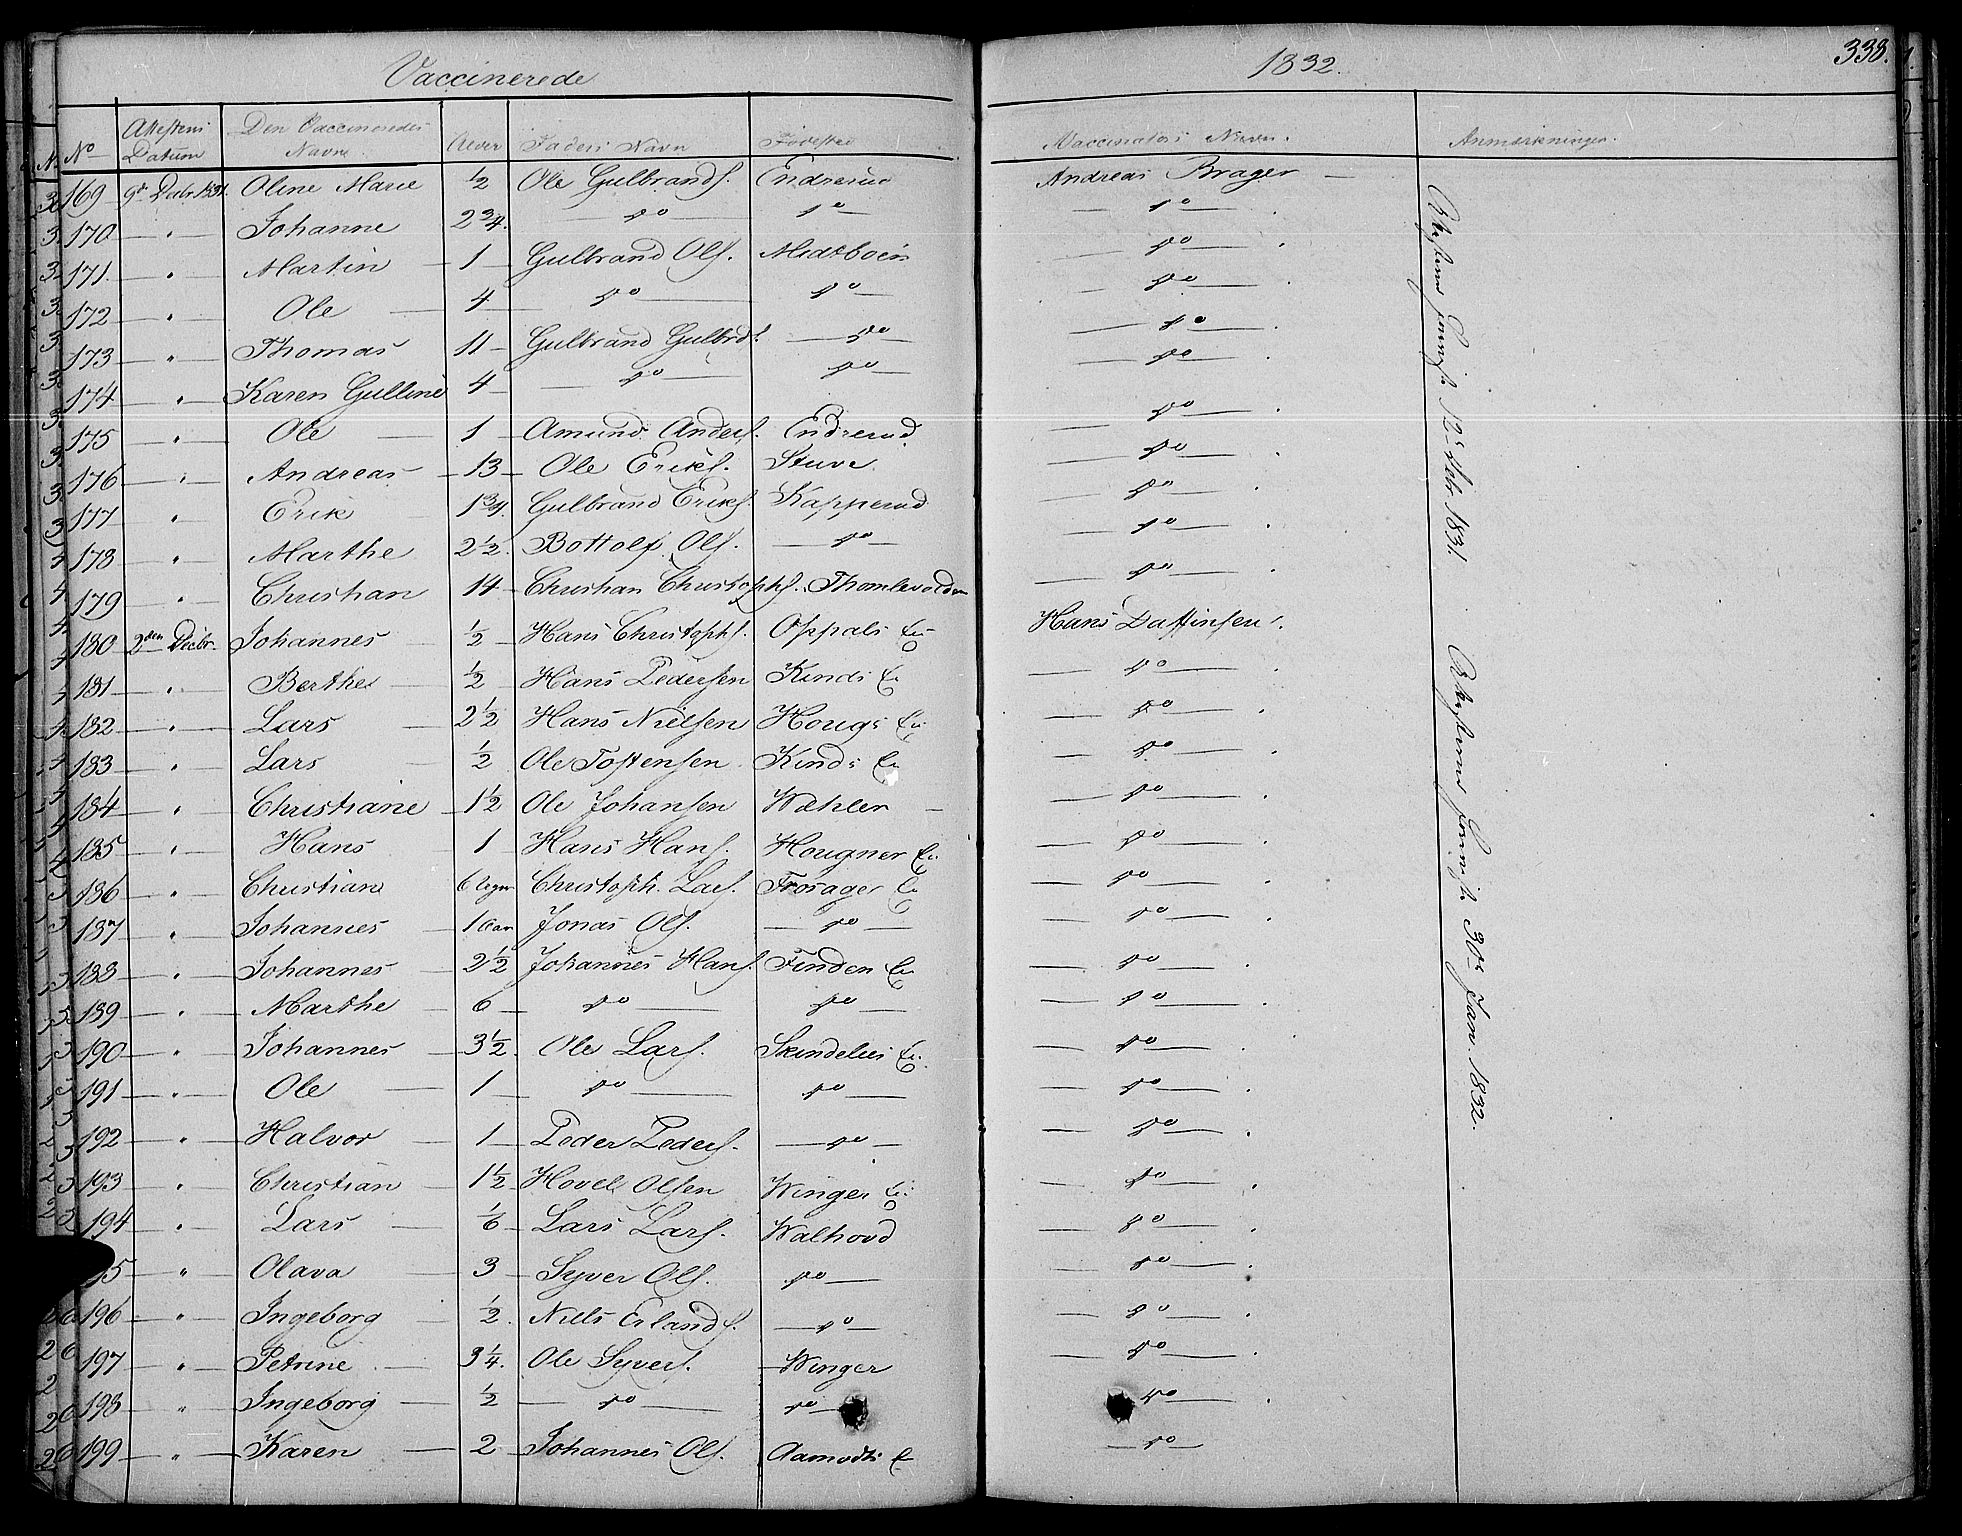 Vaccinerede 1832. 338.
No Attestens Datum Den Vaccineredes Navne Alder Faders Navn Fødested Vaccinators Navn. Anmærkninger.
169 9de Decbr. 1831. Oline Marie ½ Ole Gulbrands. Endrerud Andreas Brager —
170 — " — Johanne 2¾. — do — do — — do — .
171. " Martin — 1 — Gulbrand Ols. Midtbøen — do — .
172 — " — Ole — 4 — do — do — — do — .
173 — " — Thomas 11 — Gulbrand Gulbrds. — do — — do — .
174 — " — Karen Gulline 4 — do — do — — do — .
175 " Ole — 1 Amund Anders. Endrerud — do — .
176 — " Andreas — 13 — Ole Eriks. Stuve. — do — .
177 — " Erik — 1¾. Gulbrand Eriks. Kapperud — do — .
178 " Marthe 2½. Bottolf Ols. — do — — do — .
179 — " — Christian 14 — Christian Christophs. Thomlevolden — do — .
180 2den Decbr. Johannes — ½ — Hans Christophs. Oppals Ei. Hans Daffinsen.
181 — " — Berthe — ½ Hans Pedersen Kinds Ei — do — .
182 — " — Lars — 2½ Hans Nielsen Hougs Ei. — do — .
183 " Lars ½ Ole Tostensen Kinds Ei — do — .
184 " Christiane — 1½ Ole Johansen Wæhler — — do — .
185 " Hans 1 Hans Hans. Hougner Ei. — do — .
186 " Christian 6 Uger Christoph. Lars. Frosager Ei — do — .
187 — " Johannes — 1 Aar Jonas Ols. — do — — do — .
188 — " Johannes — 2½ Johannes Hans. Finden Ei — do — .
189 — " Marthe 6 — do — do — — do — .
190 " Johannes — 3½. Ole Lars. Ei. — do — .
191 — " — Ole — 1 — do — do — — do — .
192 — " — Halvor — 1 — Peder Peders. — do — — do — .
193 — " Christian — 1½ Hovel Olsen Winger Ei. — do — .
194 " Lars — ⅙ — Lars Lars. Walhovd — do — .
95 — " — Olava — 3 — Syver Ols. do — — do — .
196 — " — Ingeborg — ½. Niels Erlands. — do — — do — .
197 — " — Petrine — 3¼. Ole Syvers. Winger — do — .
198 — " Ingeborg — ½ — do — do — — do — .
199 — " — Karen — 2 — Johannes Ols. Aamodts Ei — do —
1831.
30te Jan. 1832.